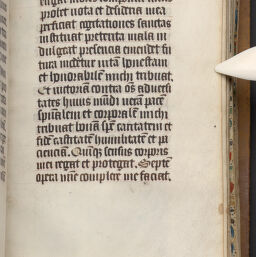 prolet uota et desideria mea
perficiat cogitationes sanctas
instituat preterita mala in
dulgeat presencia emendet fu
tura modetur uitā honestam
et honorabilem michi tribuat.
Et uictoriā contra oīs aduersi
tates huius mūdi uerā pacē
spūalem et corporalē michi
tribuat bonā spē caritatem et
fidē castitatē humilitatē et pa
cienciā. Quīqȝ sensus corporis
mei regat et protegat. Septē
opera mīe complere me faciat.